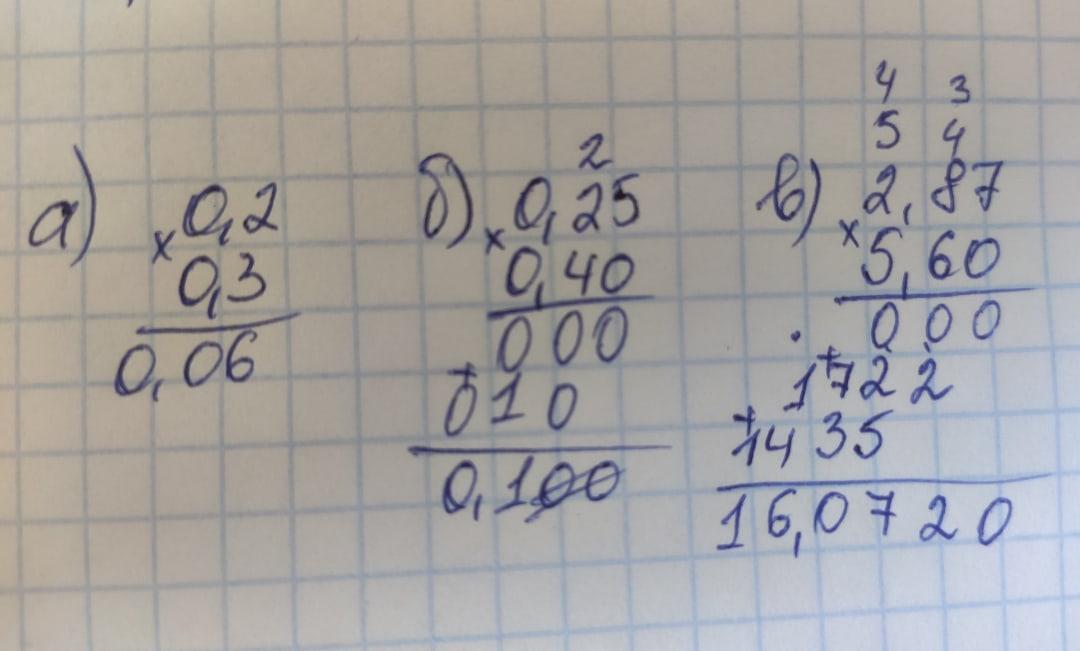 а) × 0,2
0,3
0,06
б) 2
× 0,25
0,40
000
+ 010
0,100
в) 4 3
5 4
× 2,87
5,60
000
+ 1722
+ 1435
16,0720